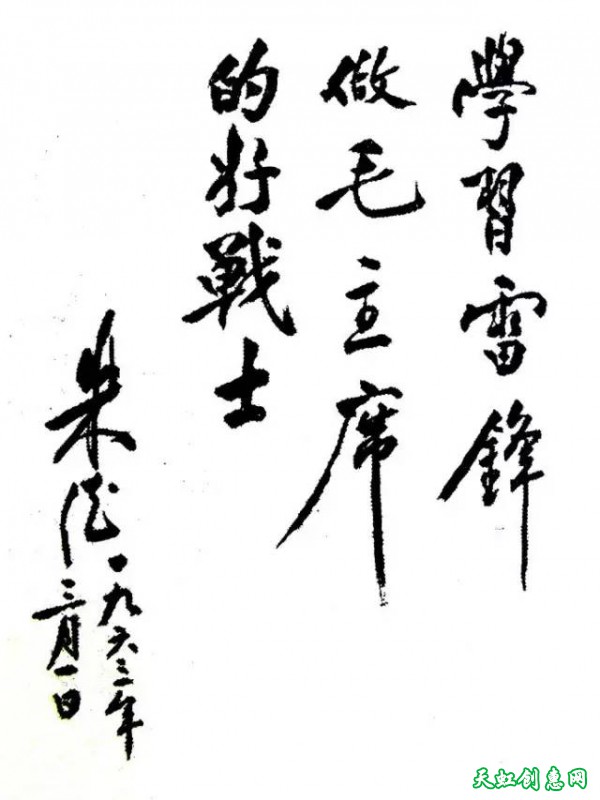 學習雷鋒
做毛主席
的好戰士
朱德
一九六三年
三月一日
天虹创惠网